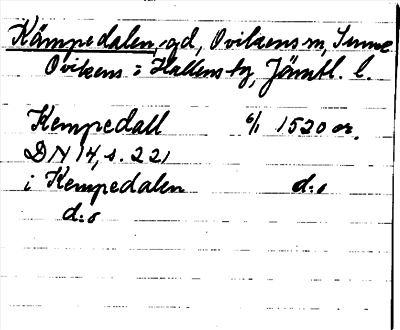 Kämpedalen, gd, Ovikens sn, Sunne
Ovikens i Hallens tg, Jämtl. l.
Kempedall 6/1 1520 or.
DN 14, s. 221
i Kempedalen d:o
d:o